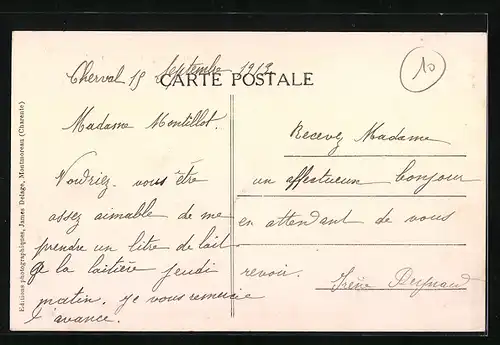 Cherval 15 septembre 1913
CARTE POSTALE
10
Madame Montillot.
Voudriez-vous être
assez aimable de me
prendre un litre de lait
à la laitière jeudi
matin. je vous remercie
d'avance.
Recevez Madame
un affectueux bonjour
en attendant de vous
revoir.
Irène
Editions photographiques, James Delage, Montmoreau (Charente)